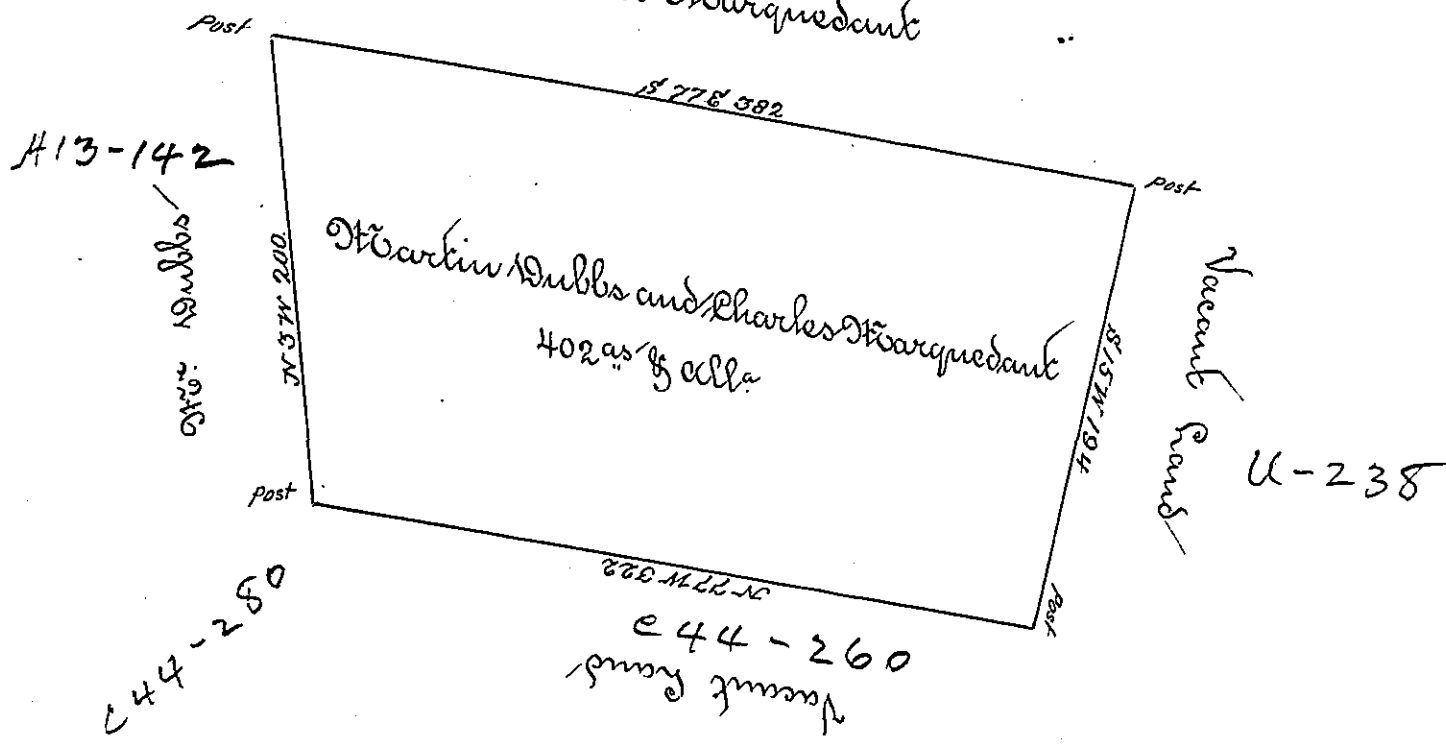 Marquedant
Post
S 77 E 382
Post
A13-142
Dubbs
N 3 W 200
Martin Dubbs and Charles Marquedant
402 as & alla
S 15 W 194
Vacant Land
U-238
Post
N 77 W 322
Post
C44-260
Vacant Land
C44-280